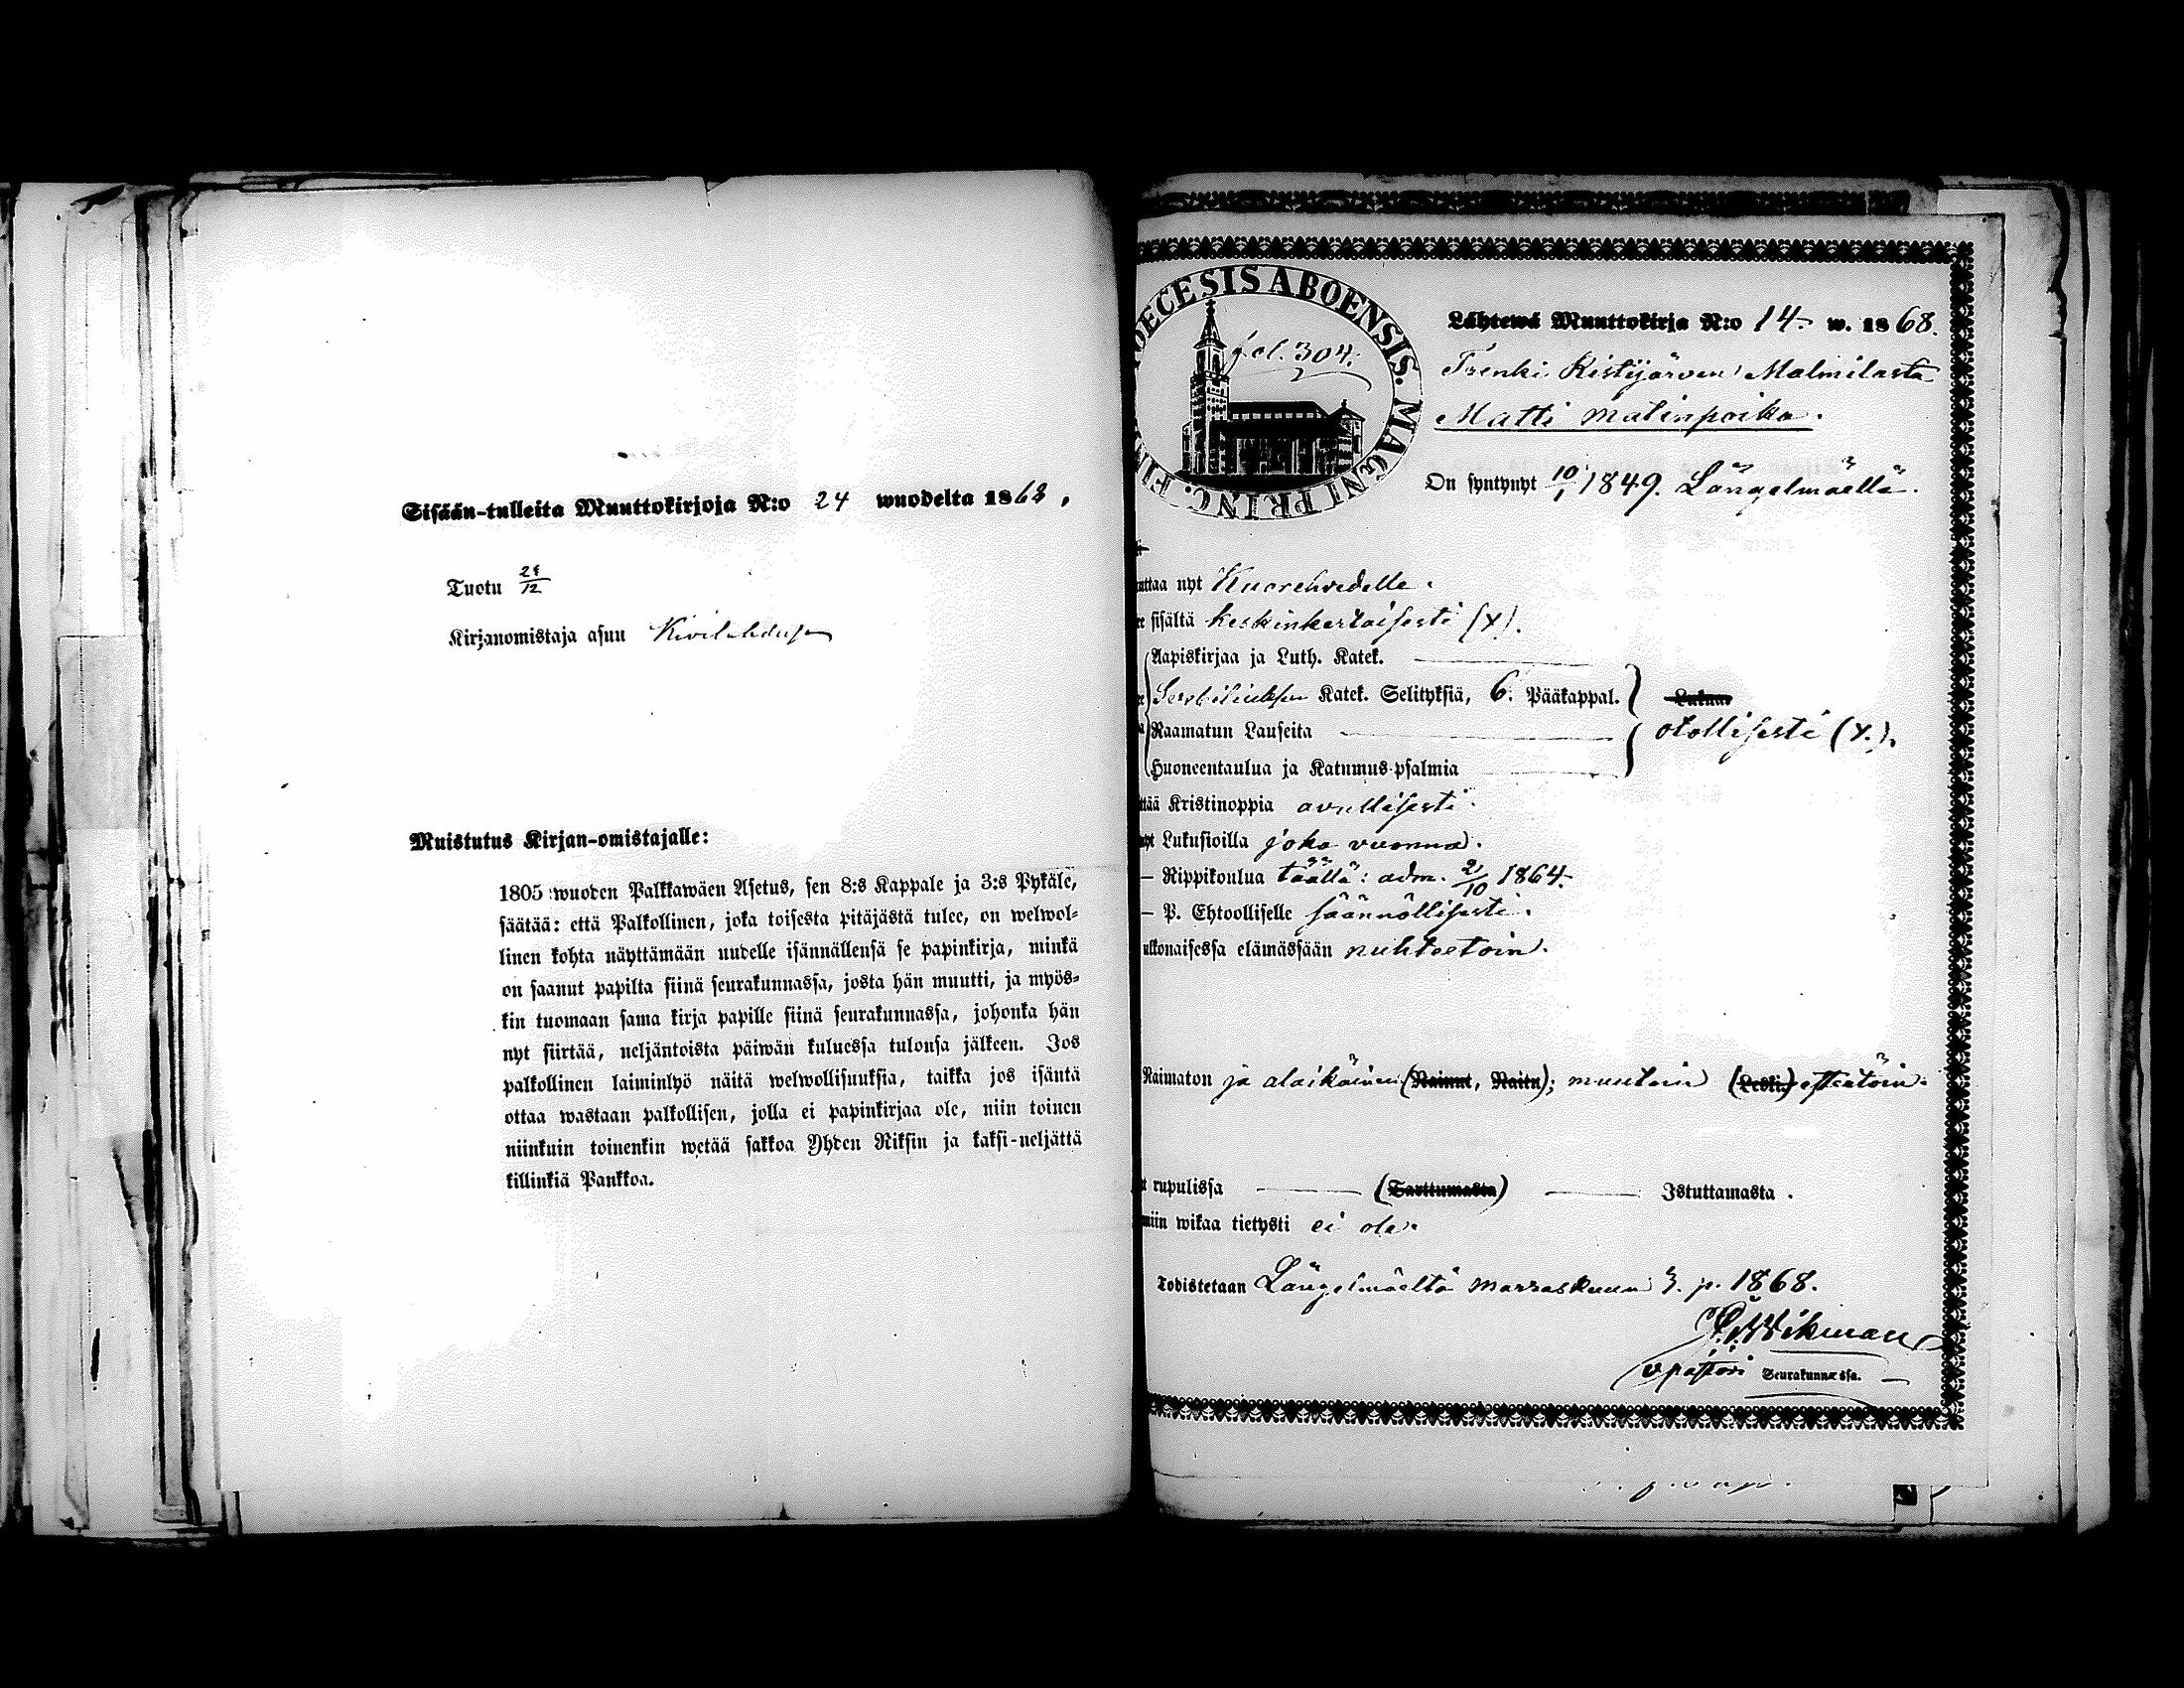 Sisään-tulleita Muuttokirjoja N:o 24 wuodelta 1868,
Tuotu 28/12
Kirjanomistaja asuu
Muistutus Kirjan-omistajalle:
1805 wuoden Palkkawäen Asetus, sen 8:s Kappale ja 3:s Pykäle,
säätää: että Palkollinen, joka toisesta pitäjästä tulee, on welwol-
linen kohta näyttämään uudelle isännällensä se papinkirja, minkä
on saanut papilta siinä seurakunnassa, josta hän muutti, ja myös-
kin tuomaan sama kirja papille siinä seurakunnassa, johonka hän
nyt siirtää, neljäntoista päiwän kuluessa tulonsa jälkeen. Jos
palkollinen laiminlyö näitä welwollisuuksia, taikka jos isäntä
ottaa wastaan palkollisen, jolla ei papinkirjaa ole, niin toinen
niinkuin toinenkin wetää sakkoa Yhden Riksin ja kaksi-neljättä
killinkiä Pankkoa.
OECESIS ABOENSIS. MAGNI PRINC. FIN
fol. 304.
Lähtewä Muuttokirja N:o 14. w. 1868.
Trenki Ristijärven Malmilasta
Matti Matinpoika.
On syntynyt 10/1 1849. Längelmäellä.
uttaa nyt Kuorehvedelle.
sisältä keskinkertaisesti (x).
Aapiskirjaa ja Luth. Katek.
Katek. Selityksiä, 6. Pääkappal. Lukuus
Raamatun Lauseita otollisesti (x.).
Huoneentaulua ja Katumus-psalmia
ttää Kristinoppia avullisesti.
nyt Lukusioilla joka vuonna.
— Rippikoulua täällä: adm. 2/10 1864.
— P. Ehtoolliselle säännöllisesti.
ulkonaisessa elämässään nuhteetoin.
Naimaton ja alaikäinen (Nainut, Naitu); muutoin (Leski) esteetöin.
t rupulissa (Tarttumasta) Istuttamasta.
miin wikaa tietysti ei ole.
Todistetaan Längelmäeltä marraskuun 3. p. 1868.
Wikman
v. pastori Seurakunnassa.